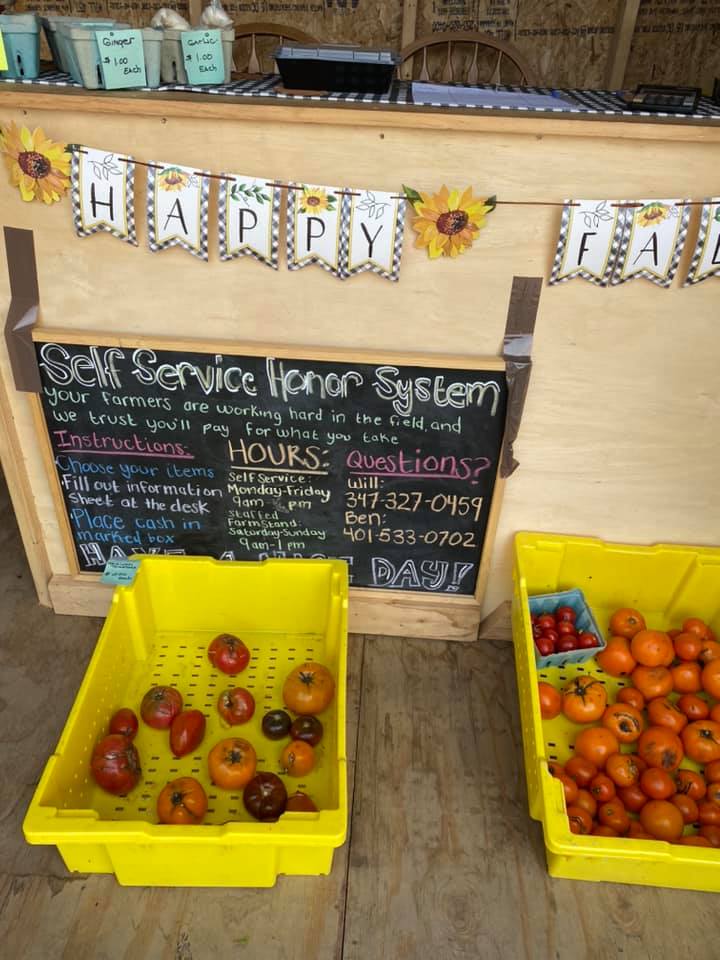 Ginger
$1.00
Each
Garlic
$1.00
Each
HAPPY FA
Self Service Honor System
your farmers are working hard in the field, and
we trust you'll pay for what you take
Instructions:
Choose your items
Fill out information
sheet at the desk
Place cash in
marked box
HOURS:
Self Service:
Monday-Friday
9am - pm
Staffed
Farm Stand:
Saturday-Sunday
9am-1pm
Questions?
Will:
347-327-0459
Ben:
401-533-0702
HAVE A NICE DAY!